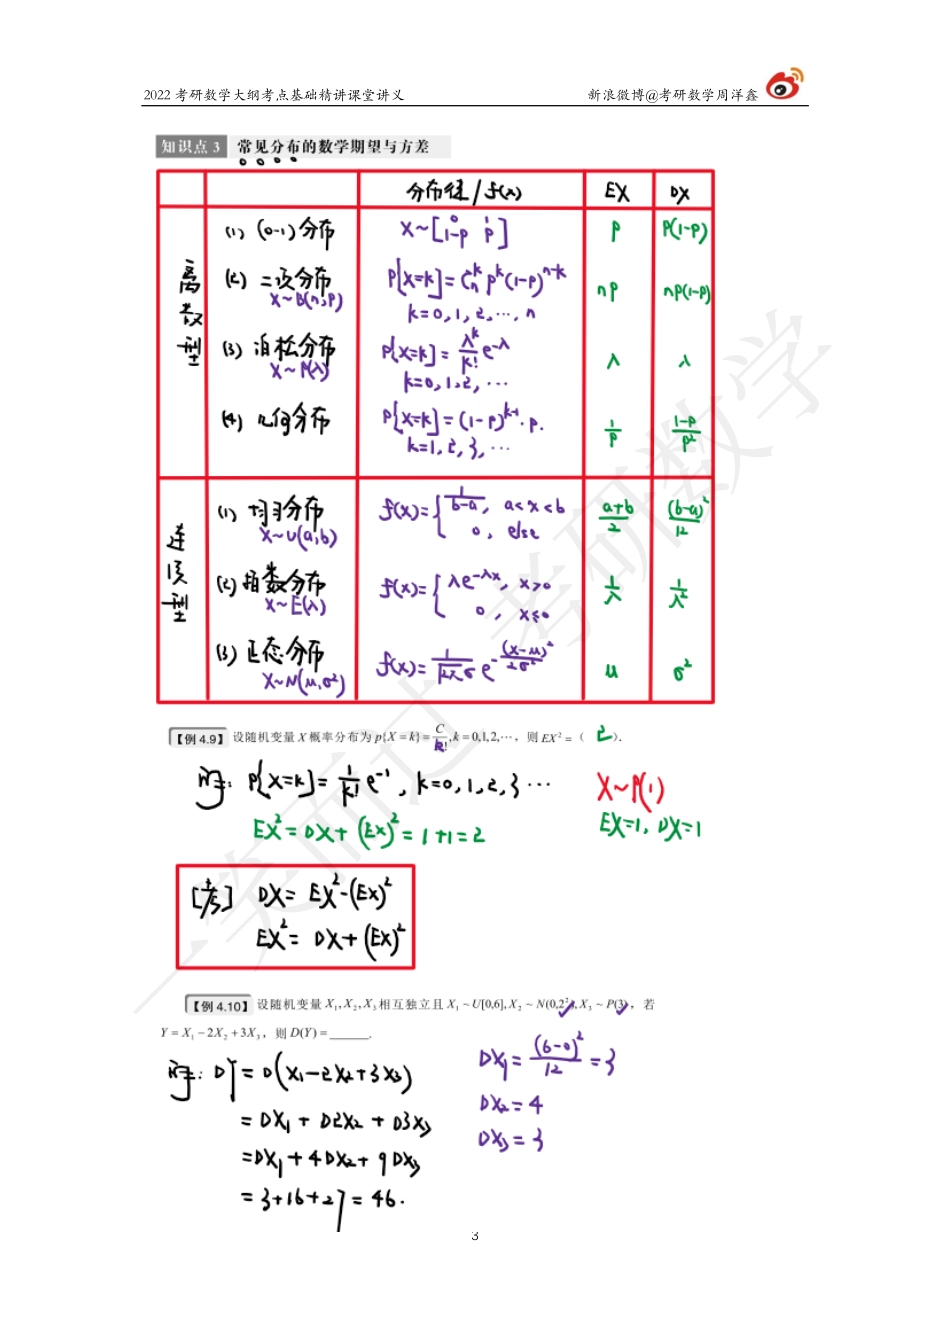 2022 考研数学大纲考点基础精讲课堂讲义 新浪微博@考研数学周洋鑫
知识点 3 常见分布的数学期望与方差
分布律/f(x) EX DX
离散型
(1) (0-1)分布 X~[0 1; 1-p p] P P(1-P)
(2) 二项分布 X~B(n,p) P{X=k}=C_n^k p^k (1-p)^{n-k} k=0,1,2,…,n nP nP(1-P)
(3) 泊松分布 X~P(λ) P{X=k}=λ^k/k! e^{-λ} k=0,1,2,… λ λ
(4) 几何分布 P{X=k}=(1-p)^{k-1}·p. k=1,2,3,… 1/P (1-P)/P²
连续型
(1) 均匀分布 X~U(a,b) f(x)={1/(b-a), a<x<b 0, else (a+b)/2 (b-a)²/12
(2) 指数分布 X~E(λ) f(x)={λe^{-λx}, x>0 0, x≤0 1/λ 1/λ²
(3) 正态分布 X~N(μ,σ²) f(x)=1/(√2π σ) e^{-(x-μ)²/2σ²} μ σ²
【例 4.9】设随机变量 X 概率分布为 p{X = k} = C/k!, k = 0,1,2,⋯，则 EX² =（ 2 ）.
解: P{X=k}=1/k! e^{-1}, k=0,1,2,3… X~P(1)
EX²=DX+(EX)²=1+1=2 EX=1, DX=1
[考] DX= EX²-(EX)²
EX²= DX+(EX)²
【例 4.10】设随机变量 X₁,X₂,X₃ 相互独立且 X₁ ~ U[0,6], X₂ ~ N(0,2²), X₃ ~ P(3)，若
Y = X₁ − 2X₂ + 3X₃，则 D(Y) = ______.
解: DY=D(X₁-2X₂+3X₃) DX₁=(6-0)²/12=3
=DX₁+D2X₂+D3X₃ DX₂=4
=DX₁+4DX₂+9DX₃ DX₃=3
=3+16+27=46.
一笑而过 考研数学
3